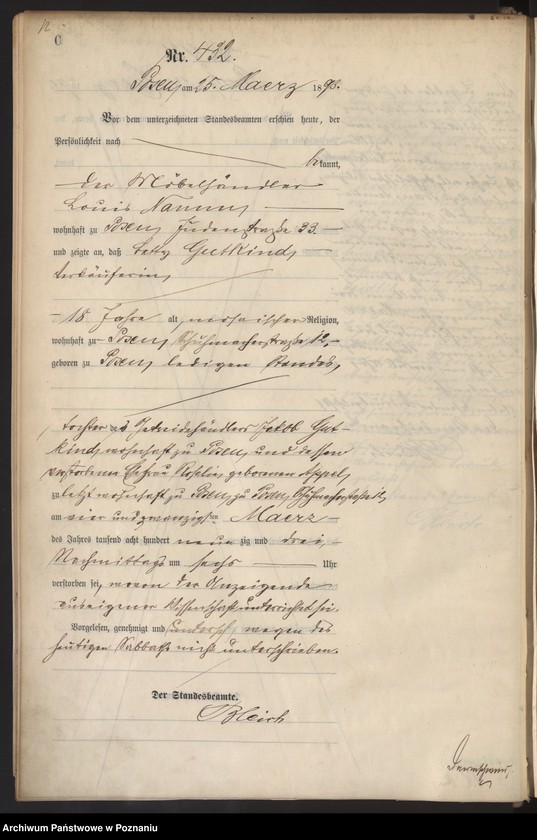 C
Nr. 432.
Posen, am 25. Maerz 1893.
Vor dem unterzeichneten Standesbeamten erschien heute, der
Persönlichkeit nach
bekannt,
der Möbelhändler
Louis
wohnhaft zu Posen, Judenstraße 33.
und zeigte an, daß Betty Gutkind,
Verkäuferin,
18 Jahre alt, mosaischer Religion,
wohnhaft zu Posen, Schuhmacherstraße 12,
geboren zu Posen, ledigen Standes,
Tochter des Getreidehändlers Jakob Gut-
kind, wohnhaft zu Posen, und dessen
verstorbenen Ehefrau Rosalie, geborenen Appel,
zuletzt wohnhaft zu Posen, zu Posen, Schuhmacherstraße 12,
am vier und zwanzigsten Maerz
des Jahres tausend acht hundert neunzig und drei,
Nachmittags um sechs Uhr
verstorben sei, wovon der Anzeigende
aus eigener Wissenschaft unterrichtet sei.
Vorgelesen, genehmigt und wegen des
heutigen Sabbaths nicht unterschrieben.
Der Standesbeamte.
Bleich
Archiwum Państwowe w Poznaniu